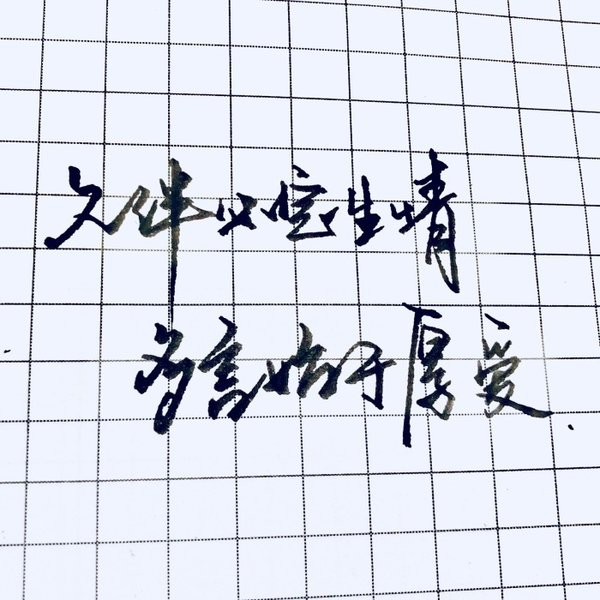 久伴必定生情
多言始于厚爱